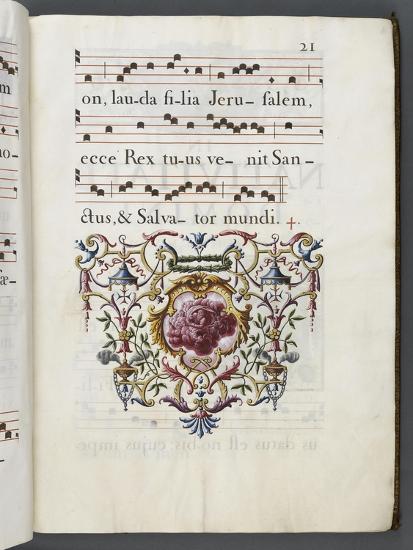 21
on, lau-da fi-lia Jeru- salem,
ecce Rex tu-us ve- nit San-
ctus, & Salva- tor mundi. +.